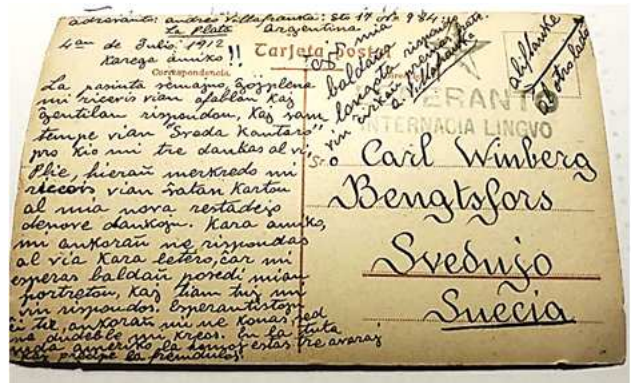 adresanto: Andrés Villafranka: Sto 17 no 984
La Plata Argentina
4an de Julio, 1912
Karega amiko!!
Tarjeta Postal
Correspondencia.
La pasinta semajno ĝojplene
mi ricevis vian afablan kaj
ĝentilan respondon, kaj sam
tempe vian "Sveda Kantaro"
pro kio mi tre dankas al vi
Plie, hieraŭ merkredo mi
ricevis vian ŝatan karton
al mia nova restadejo
denove dankojn. Kara amiko,
mi ankoraŭ ne rispondas
al via kara letero, ĉar mi
esperas baldaŭ posedi mian
portreton, kaj tiam tuj mi
vin rispondos. Esperantistojn
ĉi tie, ankoraŭ mi ne konas, sed
sendube mi kreos. En la tuta
suda ameriko la homoj estas tre avaraj
kaj precipe la fremduloj.
mia
baldaŭa
longota rispondo
vin
A. Villafranka
al otro lado
ESPERANTO
INTERNACIA LINGVO
Sro Carl Winberg
Bengtsfors
Svedujo
Suécia